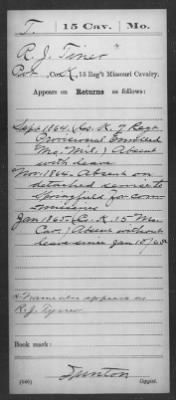 T. 15 Cav. Mo.
R. J. Tiner
Co. K, 15 Reg't Missouri Cavalry.
Appears on Returns as follows:
Sept 1864. (Co. K. 7 Regt.
Provisional Enrolled
Mo. Mil.) Absent
with leave
Nov. 1864. Absent on
detached service to
Springfield for com-
missions
Jan 1865 (C. K. 15 Mo.
Cav.) Absent without
leave since Jan 10/65
Name also appears as
R. J. Tyner
Book mark:
Copyist.